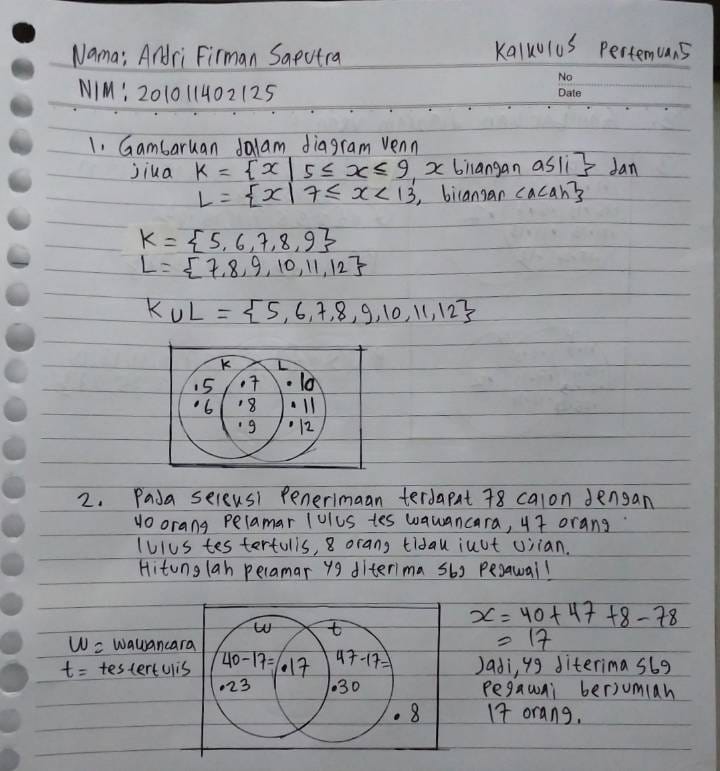 Nama: Andri Firman Saputra
Kalkulus Pertemuan 5
NIM: 201011402125
No
Date
1. Gambarkan dalam diagram venn
jika K = {x | 5 ≤ x ≤ 9, x bilangan asli} dan
L = {x | 7 ≤ x < 13, bilangan cacah}
K = {5, 6, 7, 8, 9}
L = {7, 8, 9, 10, 11, 12}
K ∪ L = {5, 6, 7, 8, 9, 10, 11, 12}
K L
.5 .7 .10
.6 .8 .11
.9 .12
2. Pada seleksi Penerimaan terdapat 78 calon dengan
40 orang pelamar lulus tes wawancara, 47 orang
lulus tes tertulis, 8 orang tidak ikut ujian.
Hitunglah pelamar yg diterima sbg pegawai!
W = wawancara
t = tes tertulis
w t
40-17= .17 47-17=
.23 .30
.8
x = 40 + 47 + 8 - 78
= 17
Jadi, yg diterima sbg
pegawai berjumlah
17 orang.